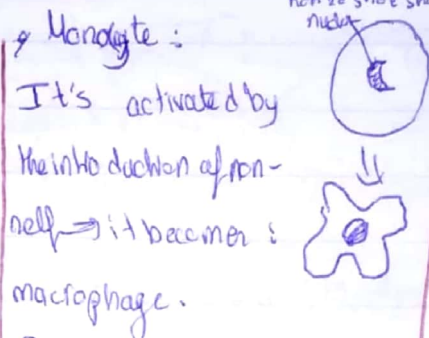 Monocyte :
nuclei
It's activated by
the introduction of non-
self → it becomes :
macrophage.